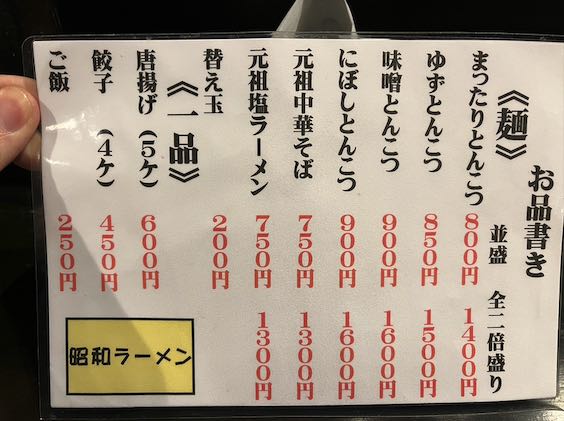 お品書き
《麺》 並盛 全二倍盛り
まったりとんこつ 800円 1400円
ゆずとんこつ 850円 1500円
味噌とんこつ 900円 1600円
にぼしとんこつ 900円 1600円
元祖中華そば 750円 1300円
元祖塩ラーメン 750円 1300円
替え玉 200円
《一品》
唐揚げ(5ケ) 600円
餃子(4ケ) 450円
ご飯 250円
昭和ラーメン